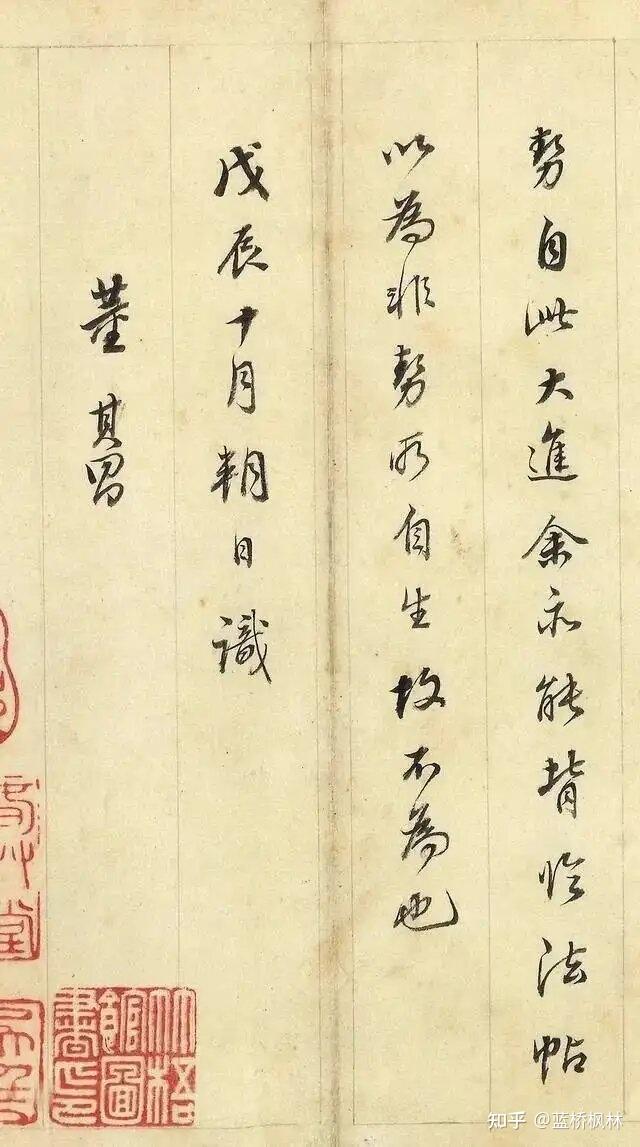 勢自此大進余亦能背臨法帖
以為非勢所自生故不為也
戊辰十月朔日識
董其昌
圖書
知乎 @蓝桥枫林